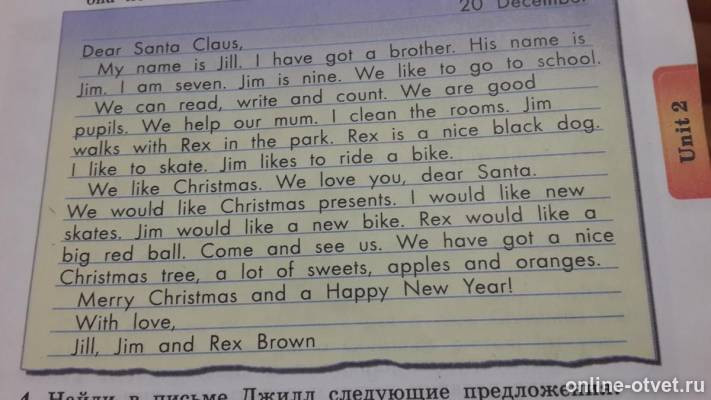 20 December
Dear Santa Claus,
My name is Jill. I have got a brother. His name is
Jim. I am seven. Jim is nine. We like to go to school.
We can read, write and count. We are good
pupils. We help our mum. I clean the rooms. Jim
walks with Rex in the park. Rex is a nice black dog.
I like to skate. Jim likes to ride a bike.
We like Christmas. We love you, dear Santa.
We would like Christmas presents. I would like new
skates. Jim would like a new bike. Rex would like a
big red ball. Come and see us. We have got a nice
Christmas tree, a lot of sweets, apples and oranges.
Merry Christmas and a Happy New Year!
With love,
Jill, Jim and Rex Brown
Unit 2
4. Найди в письме Джилл следующие предложения.
online-otvet.ru